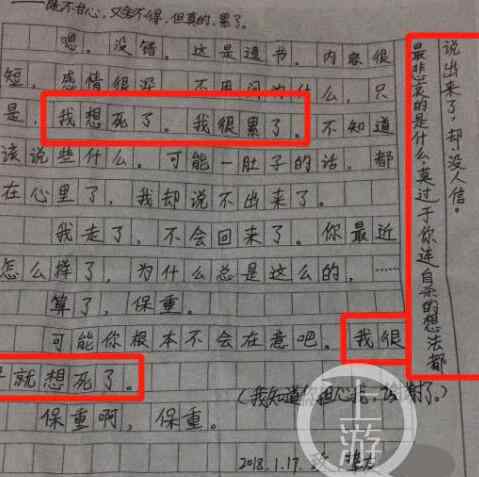 既不甘心,又舍不得,但真的,累了。
嗯。没错。这是遗书。内容很
短,感情很深。不用问为什么,只
是,我想死了。我很累了。不知道
该说些什么。可能一肚子的话,都
在心里了,我却说不出来了。
我走了,不会回来了。你最近
怎么样了,为什么总是这么的,……
算了,保重。
可能你根本不会在意吧。我很
就想死了。
(我知道你担心 谢了。)
保重啊,保重。
2018.1.17.
最悲哀的是什么,莫过于你连自杀的想法都
说出来了,却没人信。
上游